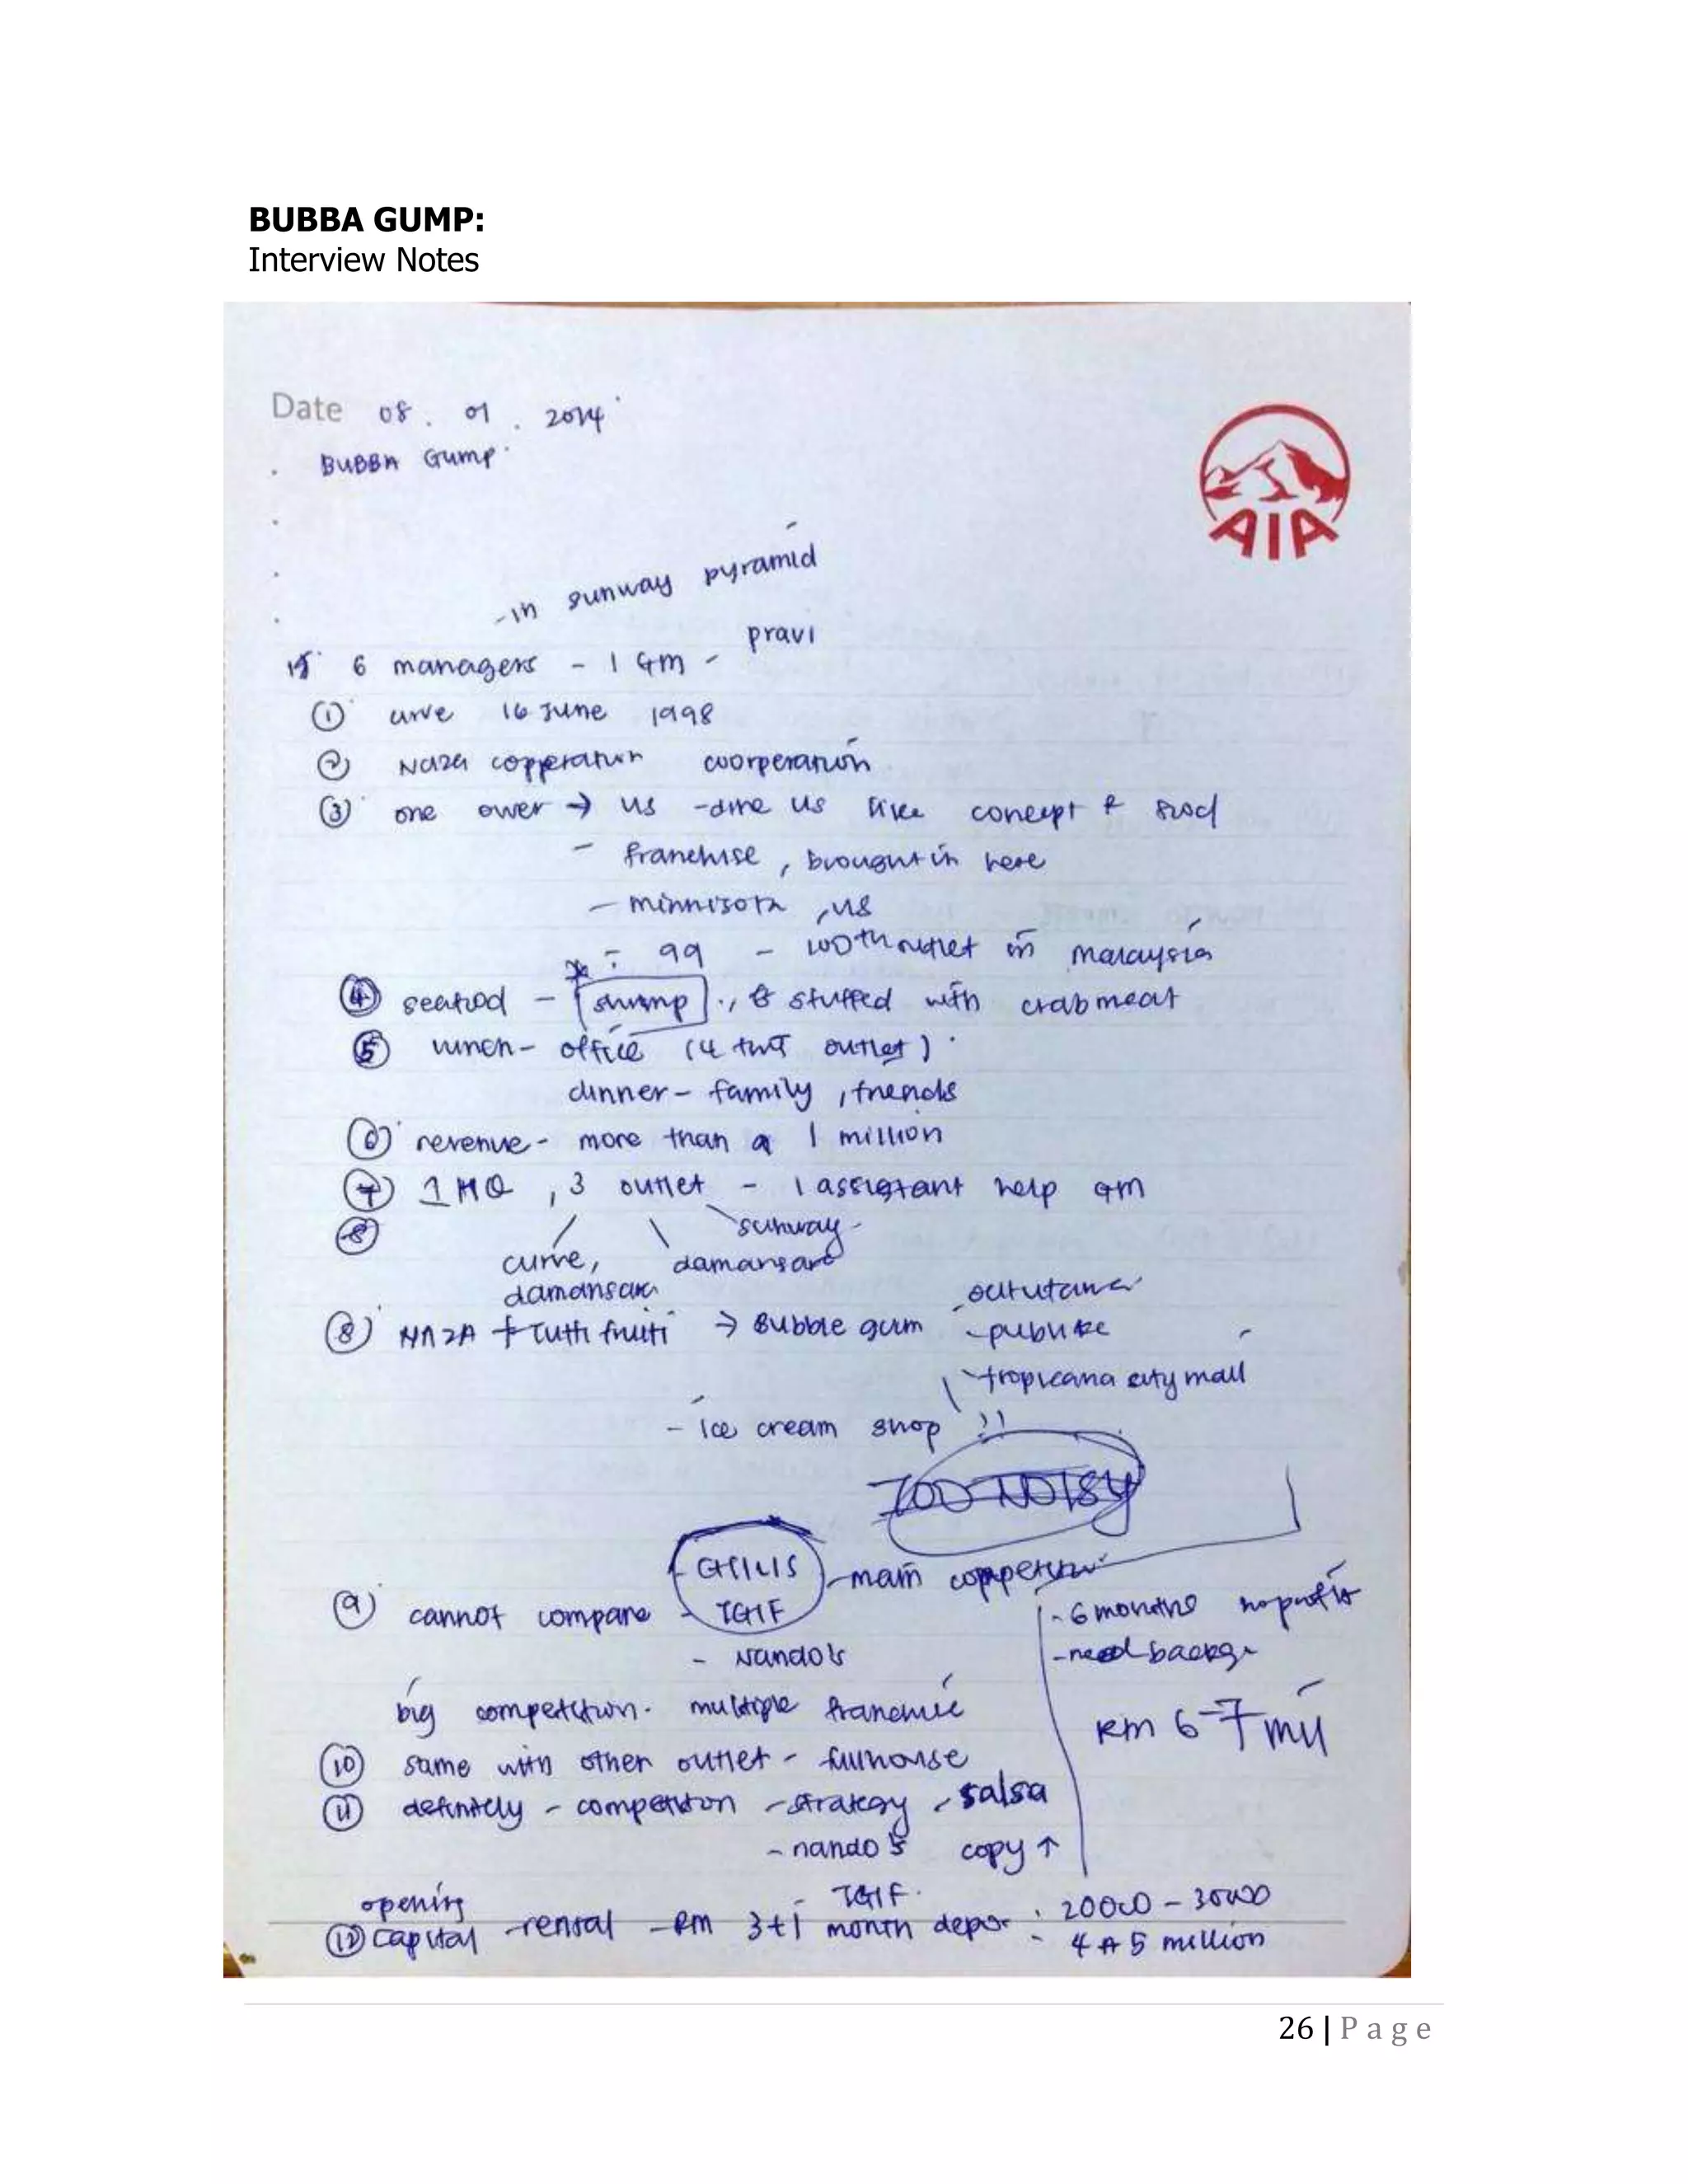 BUBBA GUMP:
Interview Notes
Date 08 . 01 . 2014
BUBBA Gump
AIA
- in sunway pyramid
6 managers - 1 GM - pravi
① curve 16 June 1998
② Naza coorperation
③ one ower → us - dine us like concept & food
- franchise , brought in here
- minnisota , us
99 - 100th outlet in malaysia
④ seafood - shrimp , stuffed with crabmeat
⑤ lunch - office ( outlet )
dinner - family , friends
⑥ revenue - more than a 1 million
⑦ 1 HQ , 3 outlet - 1 assistant help GM
⑧
sunway
curve, damansara
damansara
⑧ NAZA + Tutti fruiti → Bubble gum
- publike
- tropicana city mall
- ice cream shop !!
TOO NOISY
- CHILIS - main
⑨ cannot compare - TGIF
- 6 months no profit
- Nando's
- need
big competition. multiple franchise
RM 6-7 mil
⑩ same with other outlet - fullhouse
⑪ definitely - competition - strategy - salsa
- nando's copy ↑
- TGIF.
opening
⑫ capital - rental - RM 3+1 month depo : 20000 - 30000
4 5 million
26 | P a g e